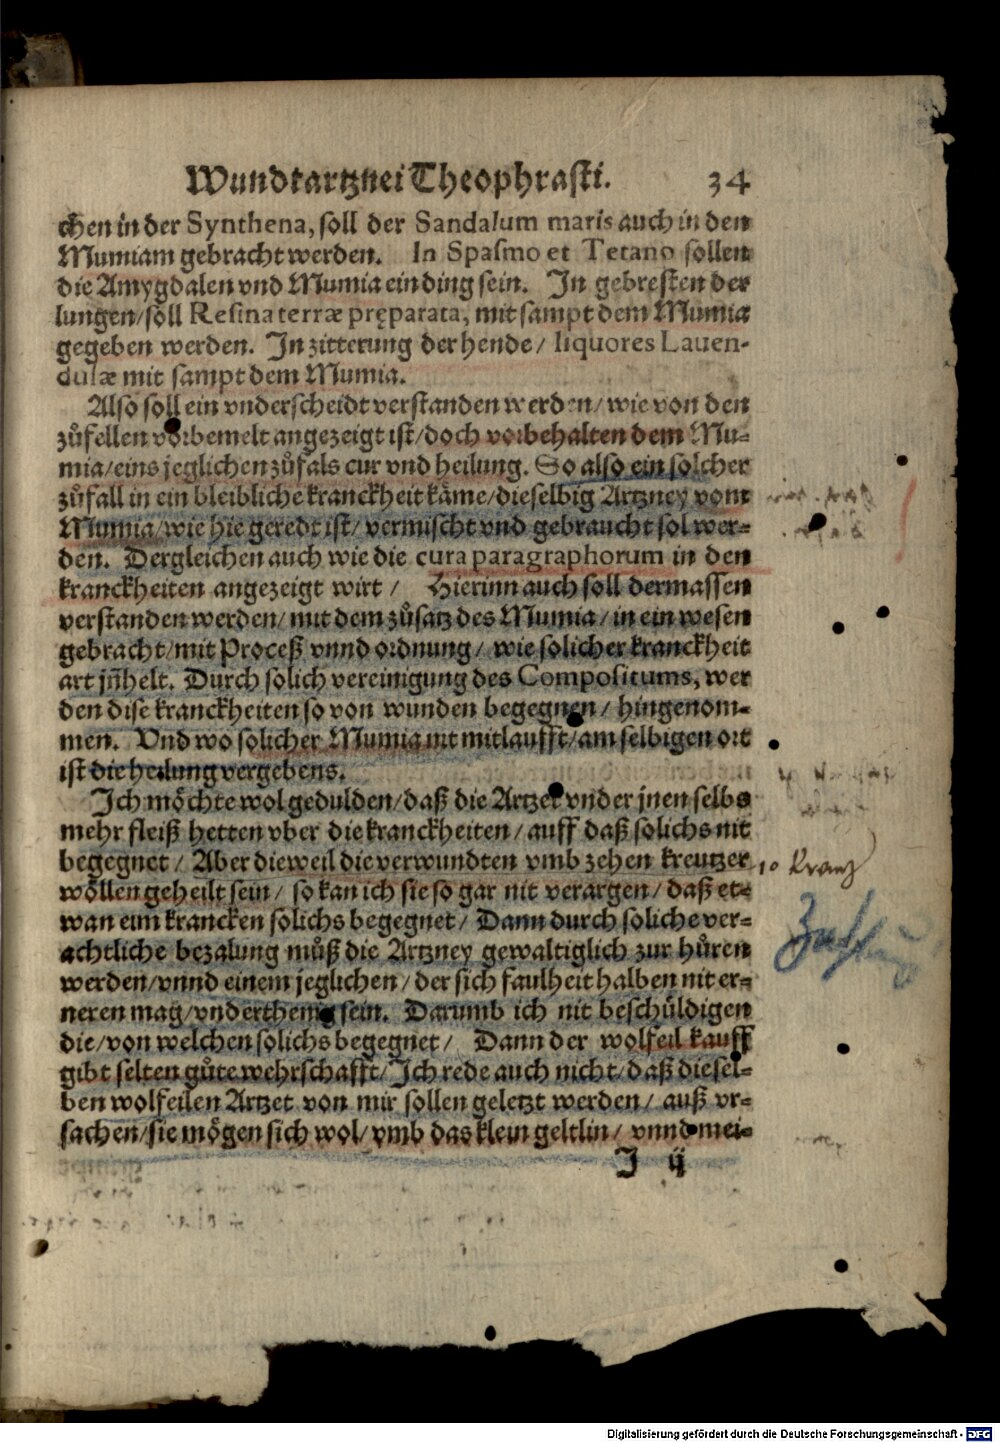 Wundtartznei Theophrasti. 34
chen in der Synthena, soll der Sandalum maris auch in den
Mumiam gebracht werden. In Spasmo et Tetano sollen
die Amygdalen vnd Mumia ein ding sein. In gebresten der
lungen/ soll Resina terræ pręparata, mit sampt dem Mumia
gegeben werden. In zitterung der hende/ liquores Lauen-
dulæ mit sampt dem Mumia.
Also soll ein vnderscheidt verstanden werden/ wie von den
zůfellen vorbemelt angezeigt ist/ doch vorbehalten dem Mu-
mia/ eins jeglichen zůfals cur vnd heilung. So also ein solcher
zůfall in ein bleibliche kranckheit käme/ dieselbig Artzney vom
Mumia/ wie hie geredt ist/ vermischt vnd gebraucht sol wer-
den. Dergleichen auch wie die cura paragraphorum in den
kranckheiten angezeigt wirt/ Hierinn auch soll dermassen
verstanden werden/ mit dem zůsatz des Mumia/ in ein wesen
gebracht/ mit Proceß vnnd ordnung/ wie solicher kranckheit
art jñhelt. Durch solich vereinigung des Compositums, wer
den dise kranckheiten so von wunden begegnen/ hingenom-
men. Vnd wo solicher Mumia nit mitlaufft/ am selbigen ort
ist die heilung vergebens.
Ich möchte wol gedulden/ daß die Artzet vnder jnen selbs
mehr fleiß hetten vber die kranckheiten/ auff daß solichs nit
begegnet/ Aber dieweil die verwundten vmb zehen kreutzer
wöllen geheilt sein/ so kan ich sie so gar nit verargen/ daß et-
wan eim krancken solichs begegnet/ Dann durch soliche ver-
achtliche bezalung můß die Artzney gewaltiglich zur hůren
werden/ vnnd einem jeglichen/ der sich faulheit halben nit er-
neren mag/ vnderthenig sein. Darumb ich nit beschüldigen
die/ von welchen solichs begegnet/ Dann der wolfeil kauff
gibt selten gůte wehrschafft/ Ich rede auch nicht/ daß diesel-
ben wolfeilen Artzet von mir sollen geletzt werden/ auß vr-
sachen/ sie mögen sich wol/ vmb das klein geltlin/ vnnd mei-
I ij
10
Digitalisierung gefördert durch die Deutsche Forschungsgemeinschaft - DFG